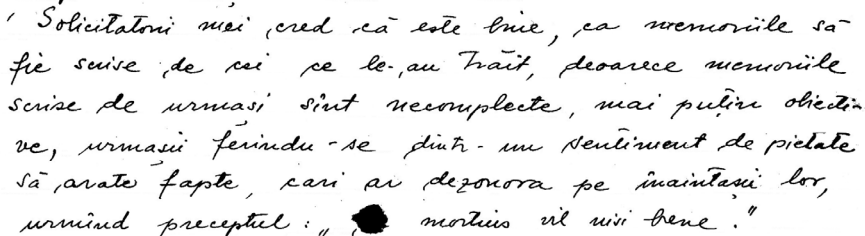 Solicitatorii mei cred că este bine, ca memoriile să
fie scrise de cei ce le-au trăit, deoarece memoriile
scrise de urmași sînt necomplecte, mai puțin obiecti-
ve, urmașii ferindu-se dintr-un sentiment de pietate
să arate fapte, cari ar dezonora pe înaintașii lor,
urmînd preceptul: „ mortius nil nisi bene."